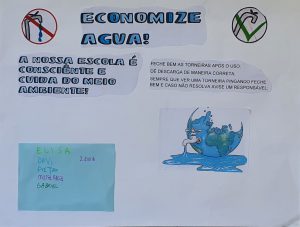 ECONOMIZE
AGUA!
A NOSSA ESCOLA É
CONSCIÊNTE E
CUIDA DO MEIO
AMBIENTE!
FECHE BEM AS TORNEIRAS APÓS O USO.
DE DESCARGA DE MANEIRA CORRETA
SEMPRE QUE VER UMA TORNEIRA PINGANDO FECHE
BEM E CASO NÃO RESOLVA AVISE UM RESPONSÁVEL
ELISA
DAVI